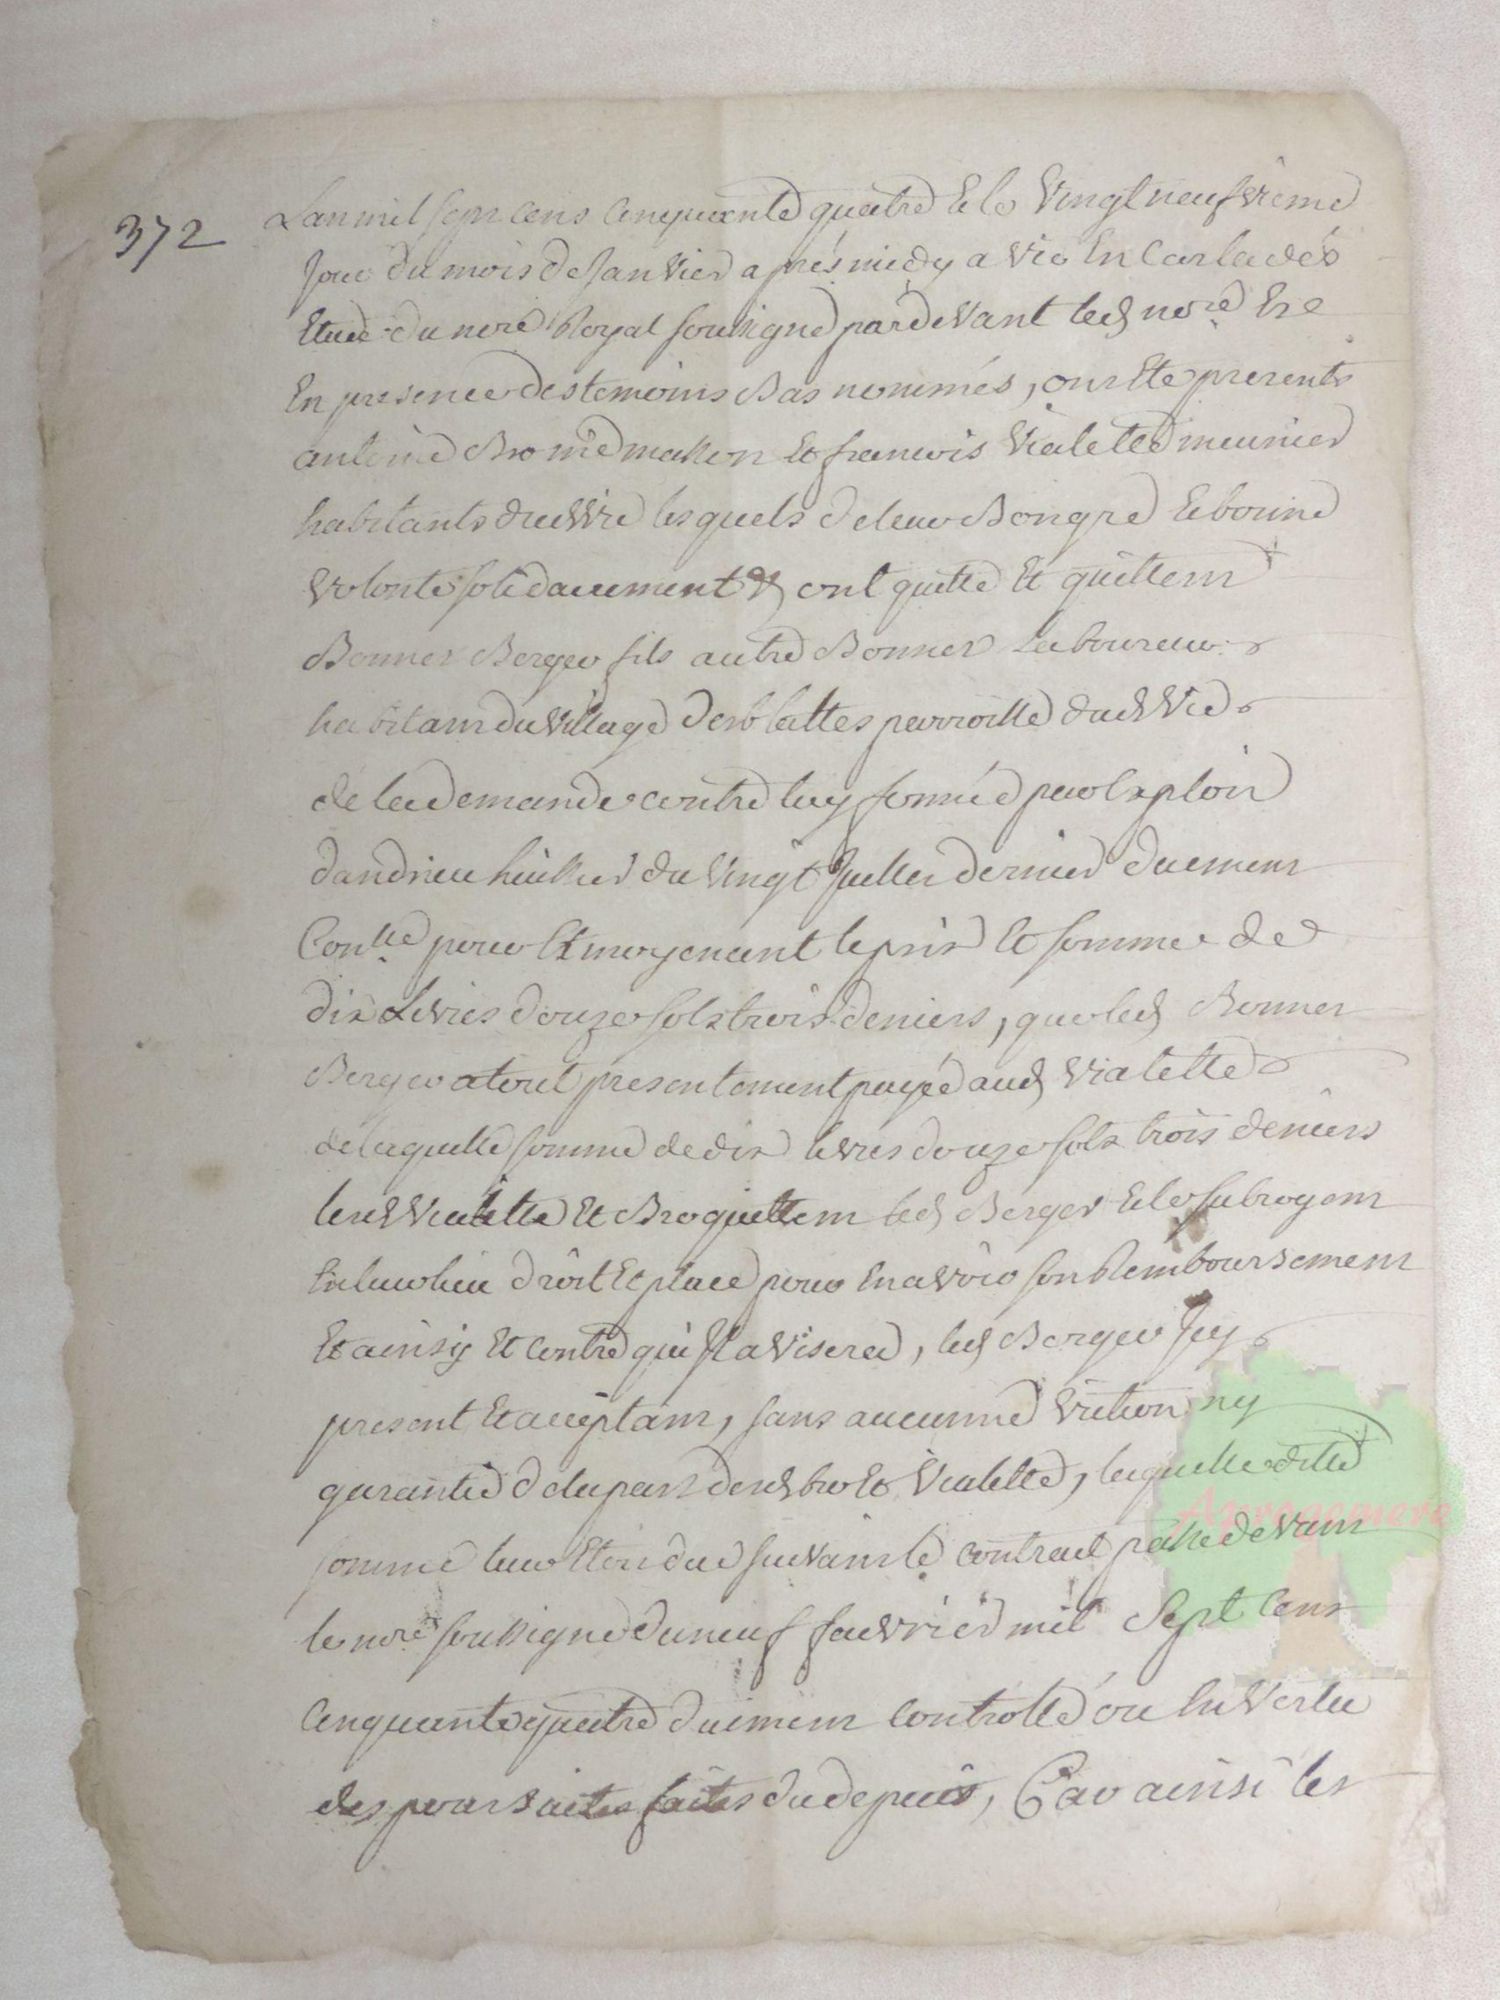 372
L'an mil sept cens cinquante quatre et le vingt neufvieme
jour du mois de janvier après midy a Vic En Carladés
Etude du nore Royal soussigné pardevant led nore Et
En presence des temoins Bas nommés, ont Eté presents
antoine Bro me masson Et francois Vialette meunier
habitants dud Vic lesquels de leur Bon gré Et bonne
volonté solidairement ont quitté Et quittent
Bonnet Berger fils autre Bonnet Laboureur
habitant du village des blattes parroisse dud Vic
de la demande contre luy formée par Exploit
dandrieu huissier du vingt Juillet dernier duement
Conllé pour Et moyenant le prix Et somme de
dix Livres douze sols trois deniers, que led Bonnet
Berger a tout presentement payée aud Vialette
de laquelle somme de dix livres douze sols trois deniers
lesd Vialette Et Bro quittent led Berger Et le subrogent
En leur lieu droit Et place pour En avoir son Remboursement
Et ainsy Et contre qui Il avisera, led Berger Icy
present Et acceptant, sans aucunne Eviction ny
garantie de la part desd bro Et Vialette, laquelle ditte
somme leur Etoit due suivant le contract passé devant
le nore soussigné du neuf fevrier mil Sept Cens
Cinquante quatre duement controllé ou En Vertu
des poursuites faites du depuis, Car ainsi les
Auvragemere